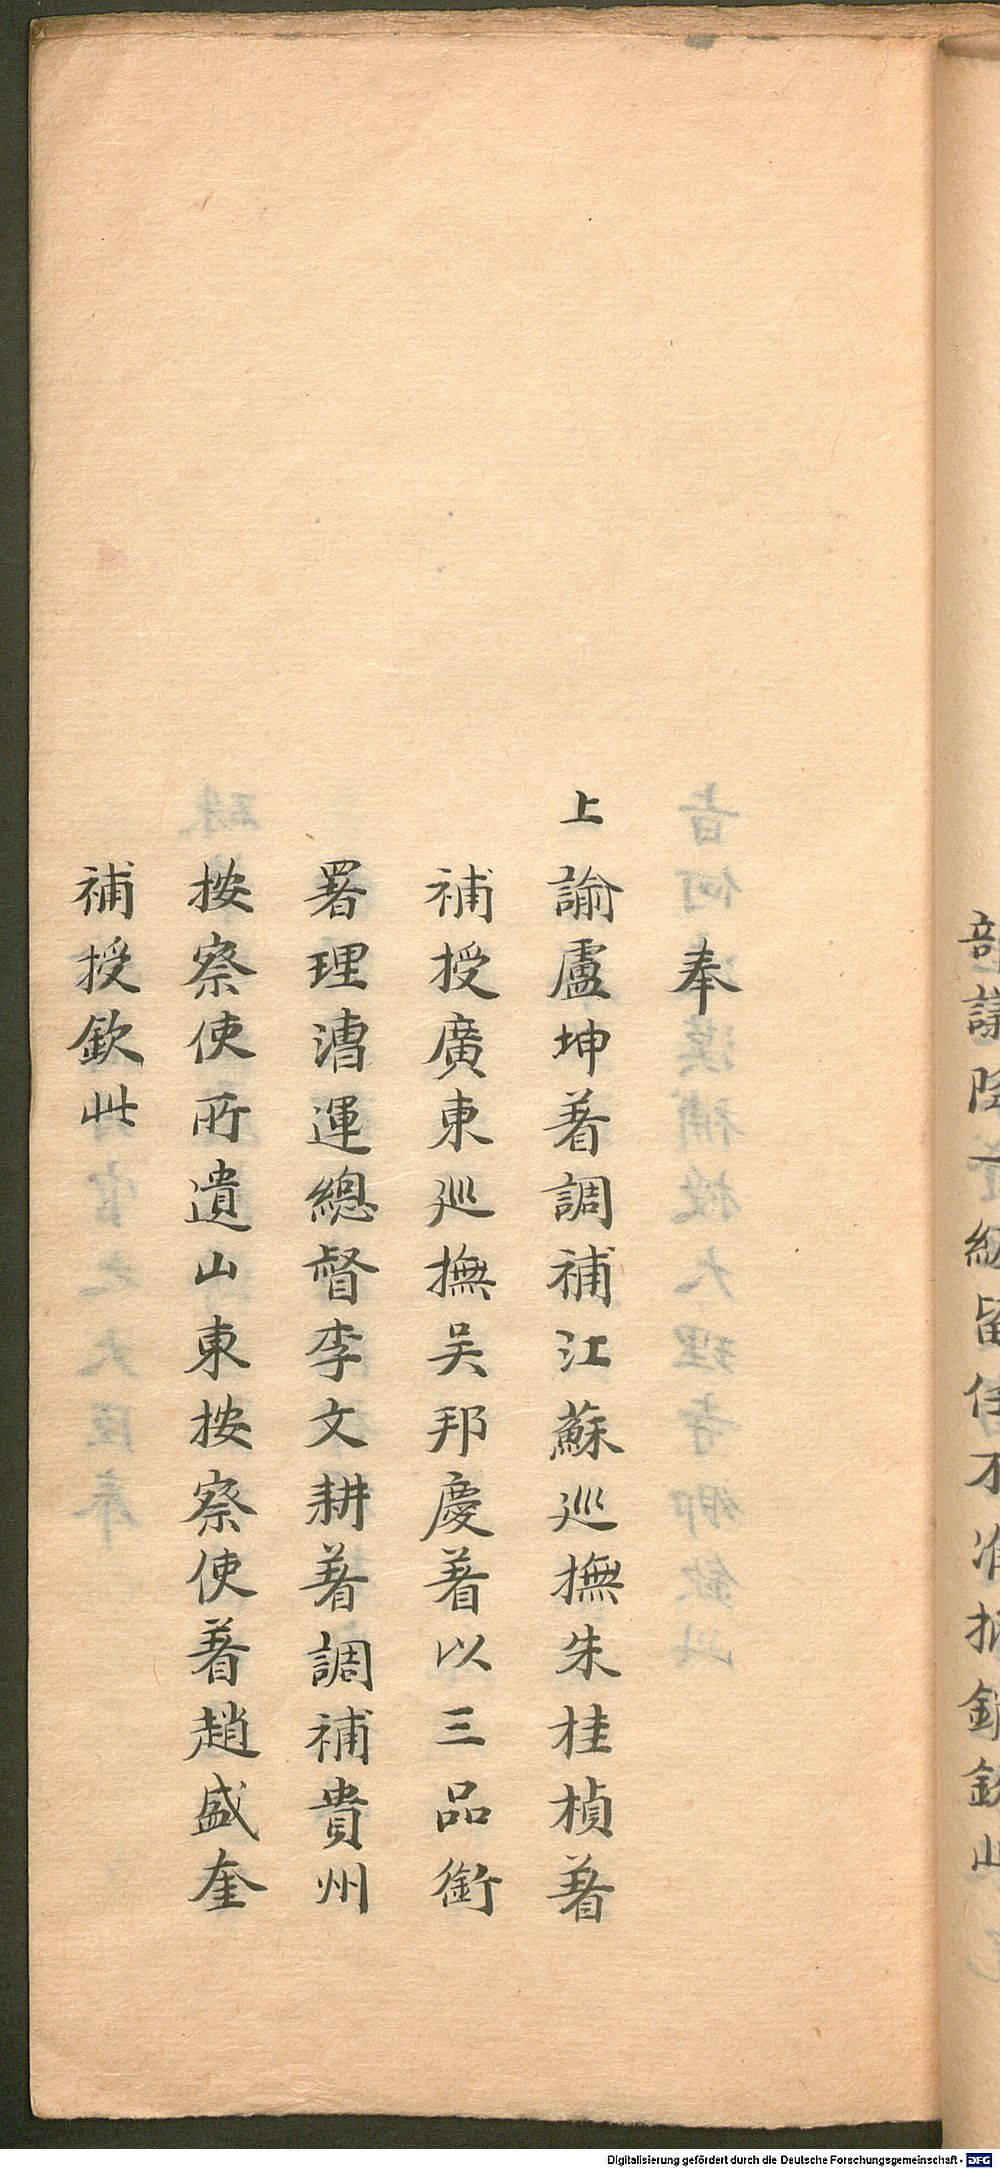 奉
上諭盧坤著調補江蘇巡撫朱桂楨著
補授廣東巡撫吴邦慶著以三品銜
署理漕運總督李文耕著調補貴州
按察使所遺山東按察使著趙盛奎
補授欽此
議降一級留任不准抵銷欽此
Digitalisierung gefördert durch die Deutsche Forschungsgemeinschaft - DFG